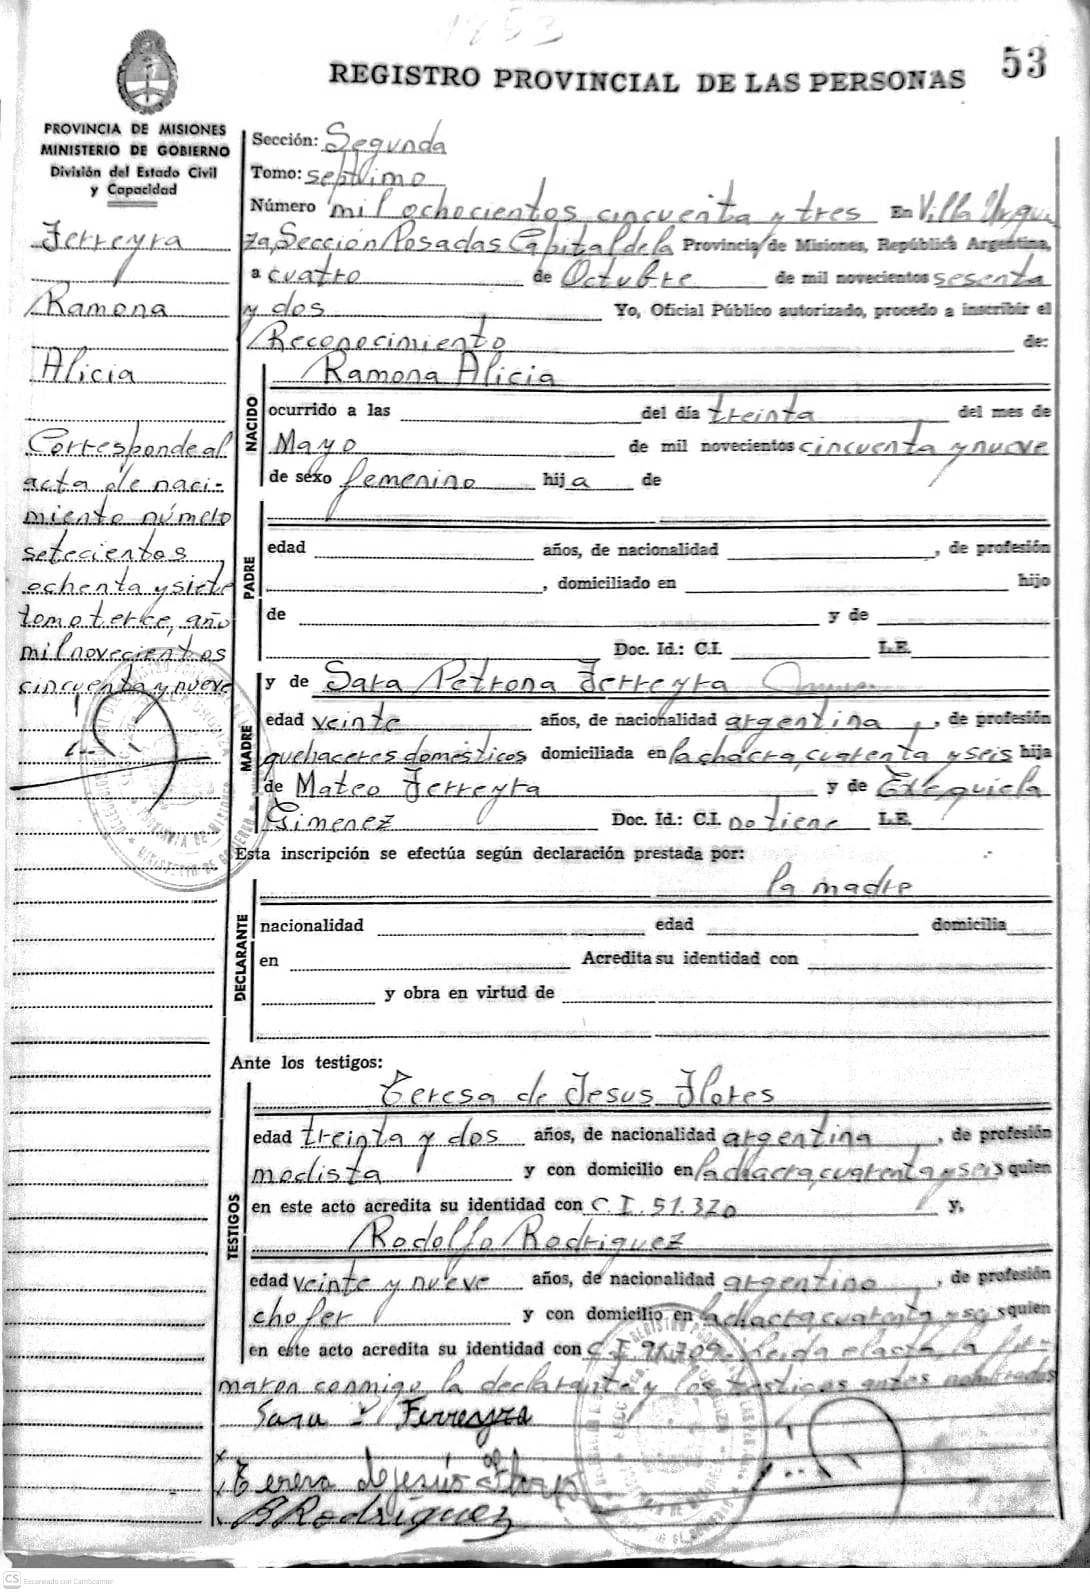 1853
53
REGISTRO PROVINCIAL DE LAS PERSONAS
PROVINCIA DE MISIONES
MINISTERIO DE GOBIERNO
División del Estado Civil
y Capacidad
Ferreyra
Ramona
Alicia
Corresponde al
acta de naci-
miento número
setecientos
ochenta y siete
tomo terce, año
mil novecientos
cincuenta y nueve
Sección: Segunda
Tomo: septimo
Número mil ochocientos cincuenta y tres En Villa Urqui
za, Sección Posadas Capital de la Provincia de Misiones, República Argentina,
a cuatro de Octubre de mil novecientos sesenta
y dos Yo, Oficial Público autorizado, procedo a inscribir el
Reconocimiento de:
NACIDO
Ramona Alicia
ocurrido a las del día treinta del mes de
Mayo de mil novecientos cincuenta y nueve
de sexo femenino hija de
PADRE
edad años, de nacionalidad , de profesión
, domiciliado en hijo
de y de
Doc. Id.: C.I. L.E.
MADRE
y de Sara Petrona Ferreyra
edad veinte años, de nacionalidad argentina, de profesión
quehaceres domésticos domiciliada en la chacra, cuarenta y seis hija
de Mateo Ferreyra y de Exequiela
Gimenez Doc. Id.: C.I. no tiene L.E.
Esta inscripción se efectúa según declaración prestada por:
DECLARANTE
la madre
nacionalidad edad domicilia
en Acredita su identidad con
y obra en virtud de
Ante los testigos:
TESTIGOS
Teresa de Jesus Flores
edad treinta y dos años, de nacionalidad argentina, de profesión
modista y con domicilio en la chacra, cuarenta y seis quien
en este acto acredita su identidad con C.I. 51.320 y,
Rodolfo Rodriguez
edad veinte y nueve años, de nacionalidad argentino, de profesión
chofer y con domicilio en la chacra cuarenta y se squien
en este acto acredita su identidad con C.I. 91.709. Leida el acta, la fir-
maron conmigo la declarante y los testigos antes nombrados
Sara P Ferreyra
Teresa de jesús de Flores
R Rodriguez
CS Escaneado con CamScanner